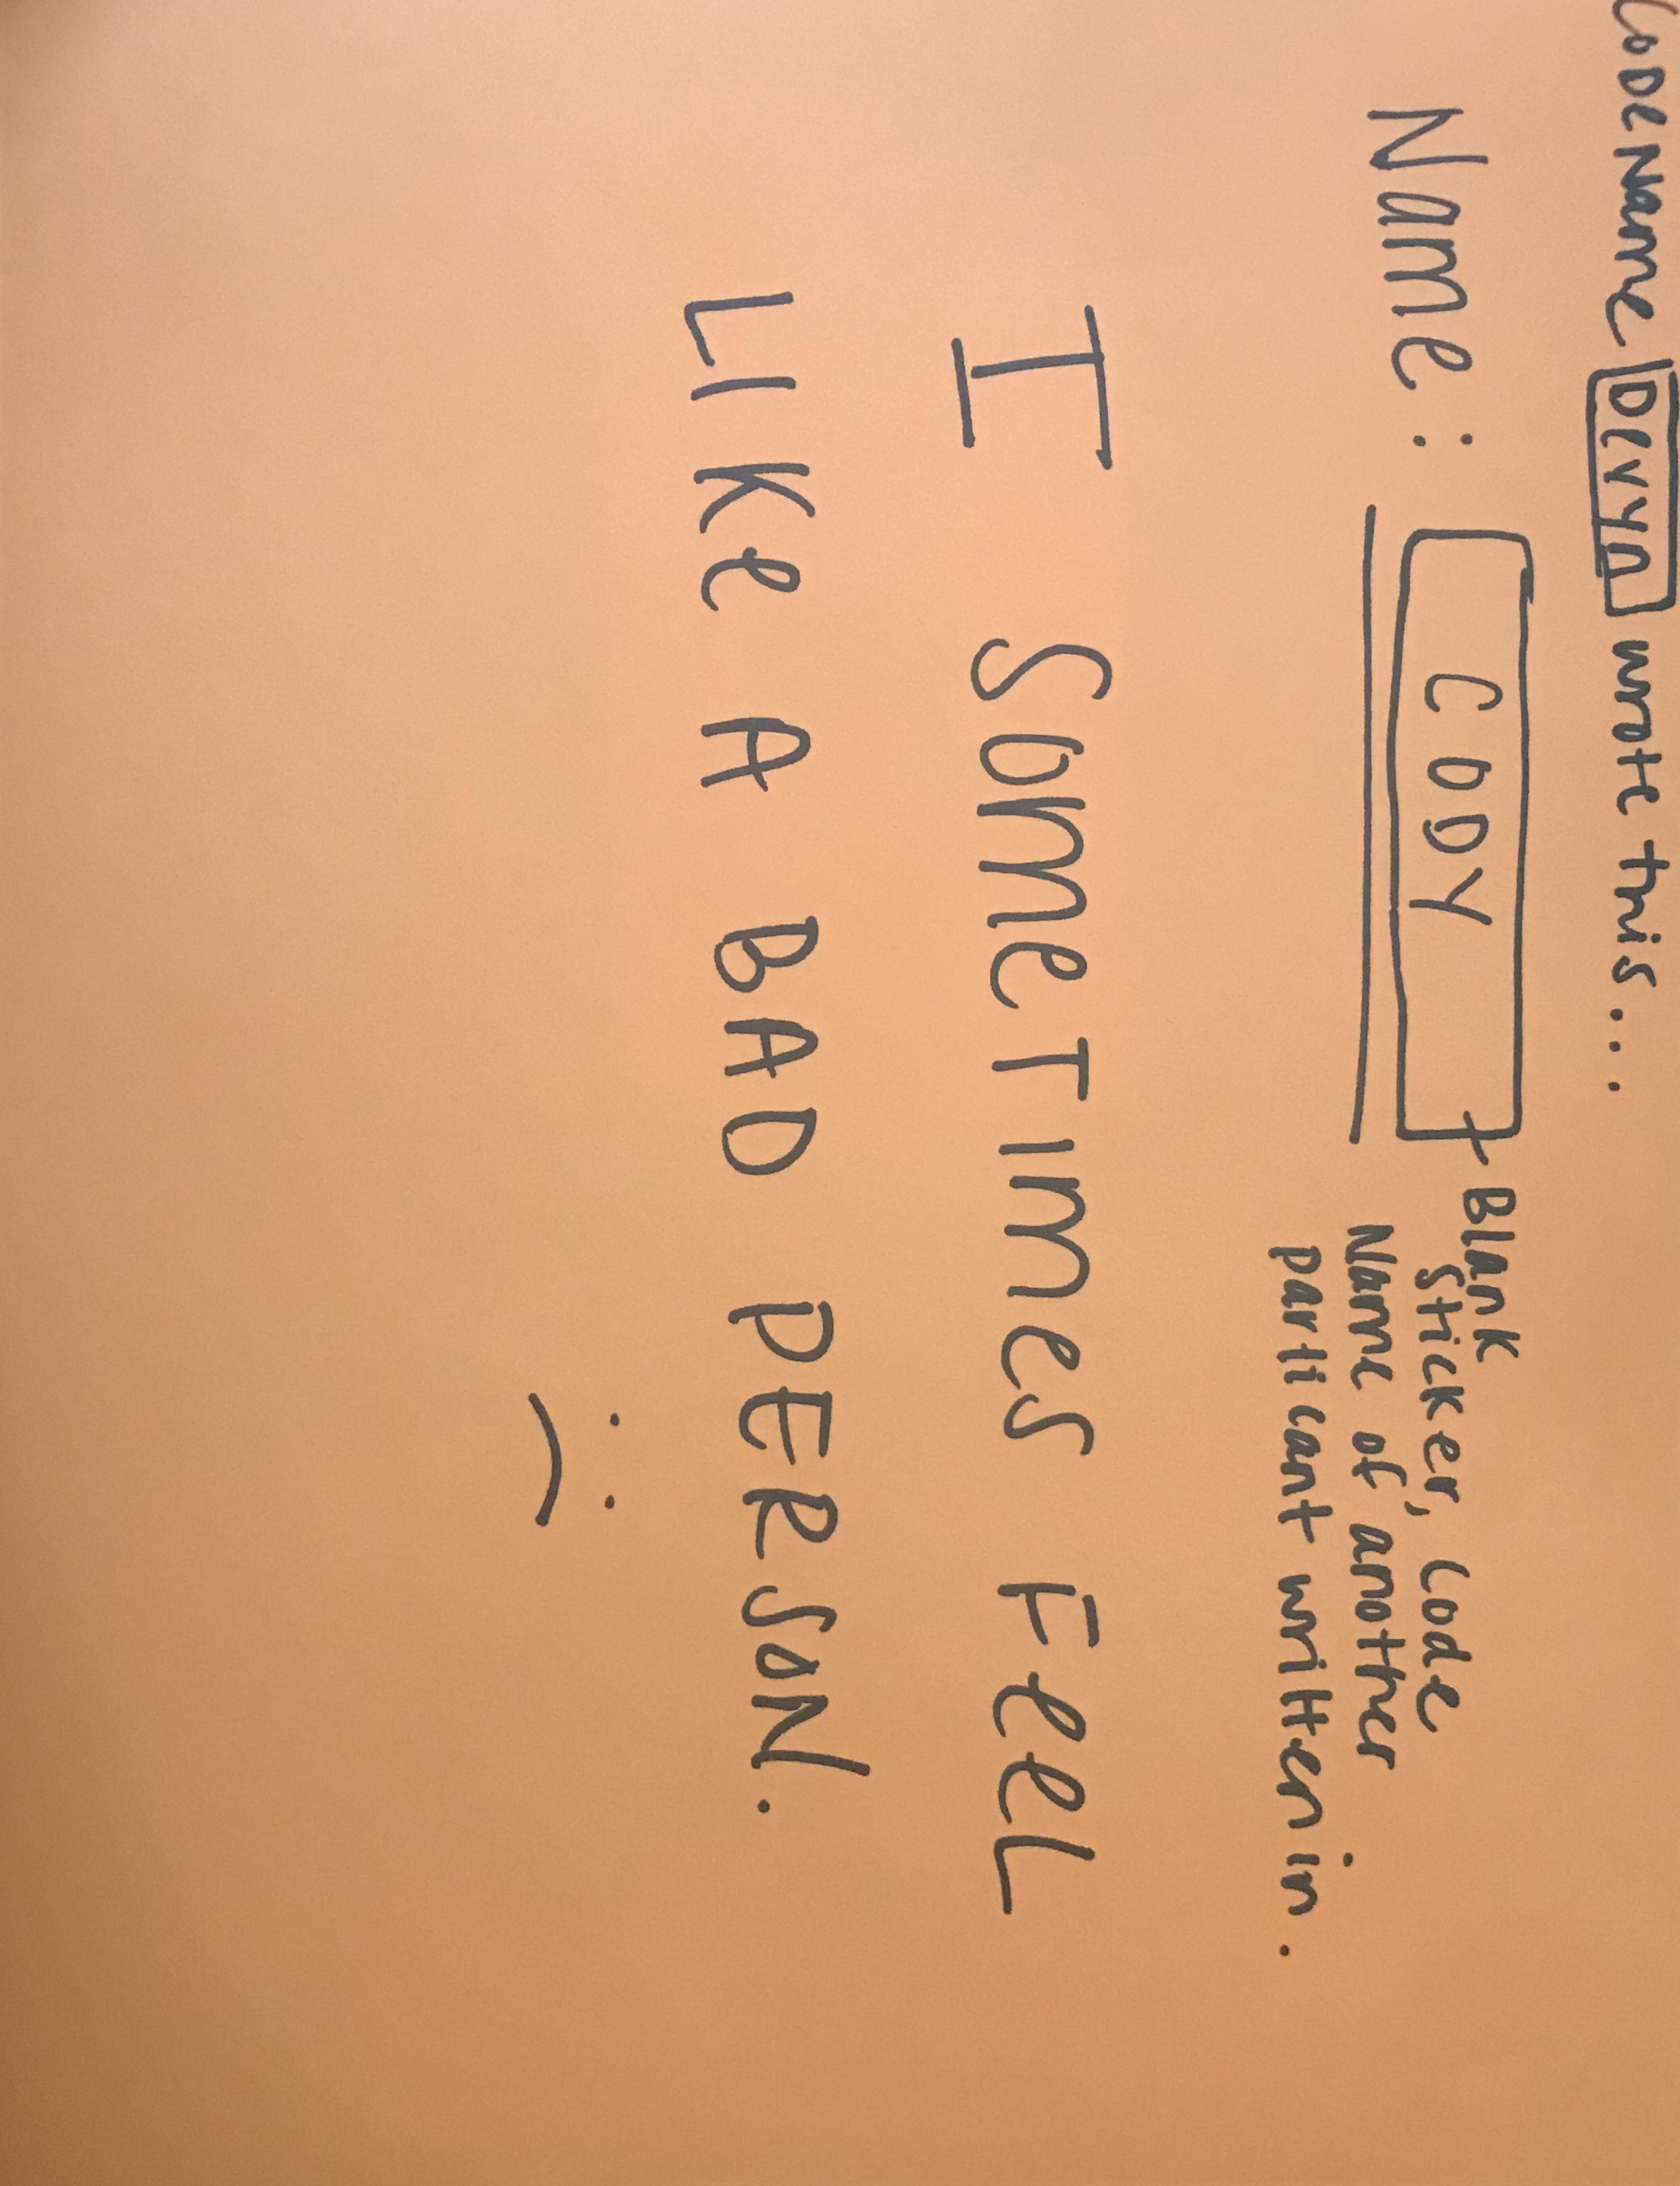 CODE Name Devyn wrote this...
Name: CODY
Blank
sticker, code
Name of another
participant written in.
I SOMETIMES FEEL
LIKE A BAD PERSON.
:(